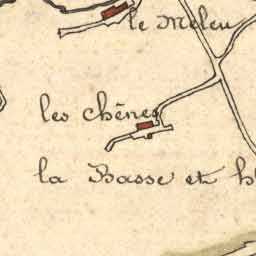 le Meleu
les chênes
la Basse et h